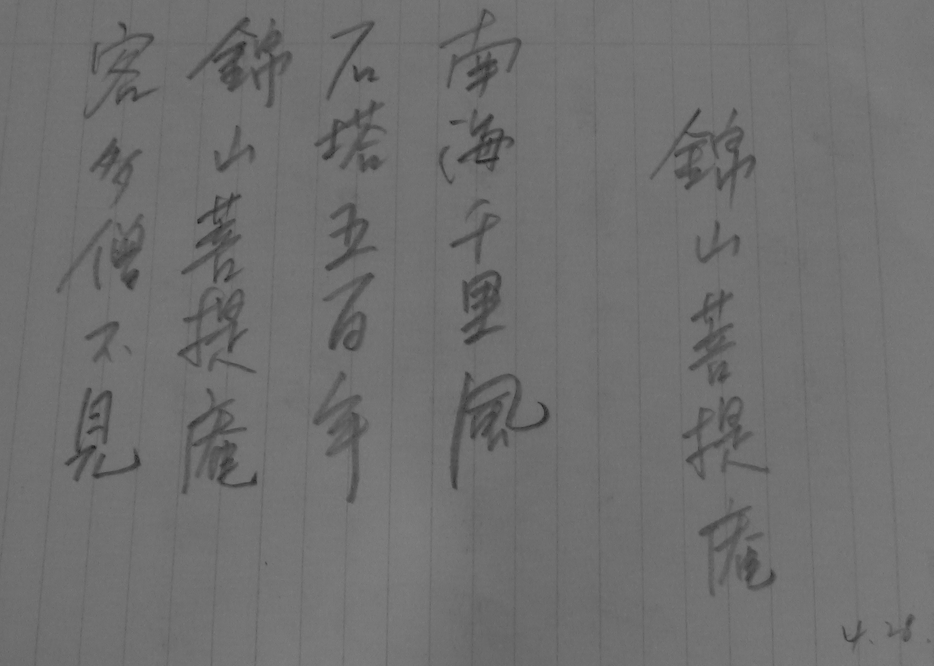 錦山菩提庵
南海千里風
石塔五百年
錦山菩提庵
客多僧不見
4.28.